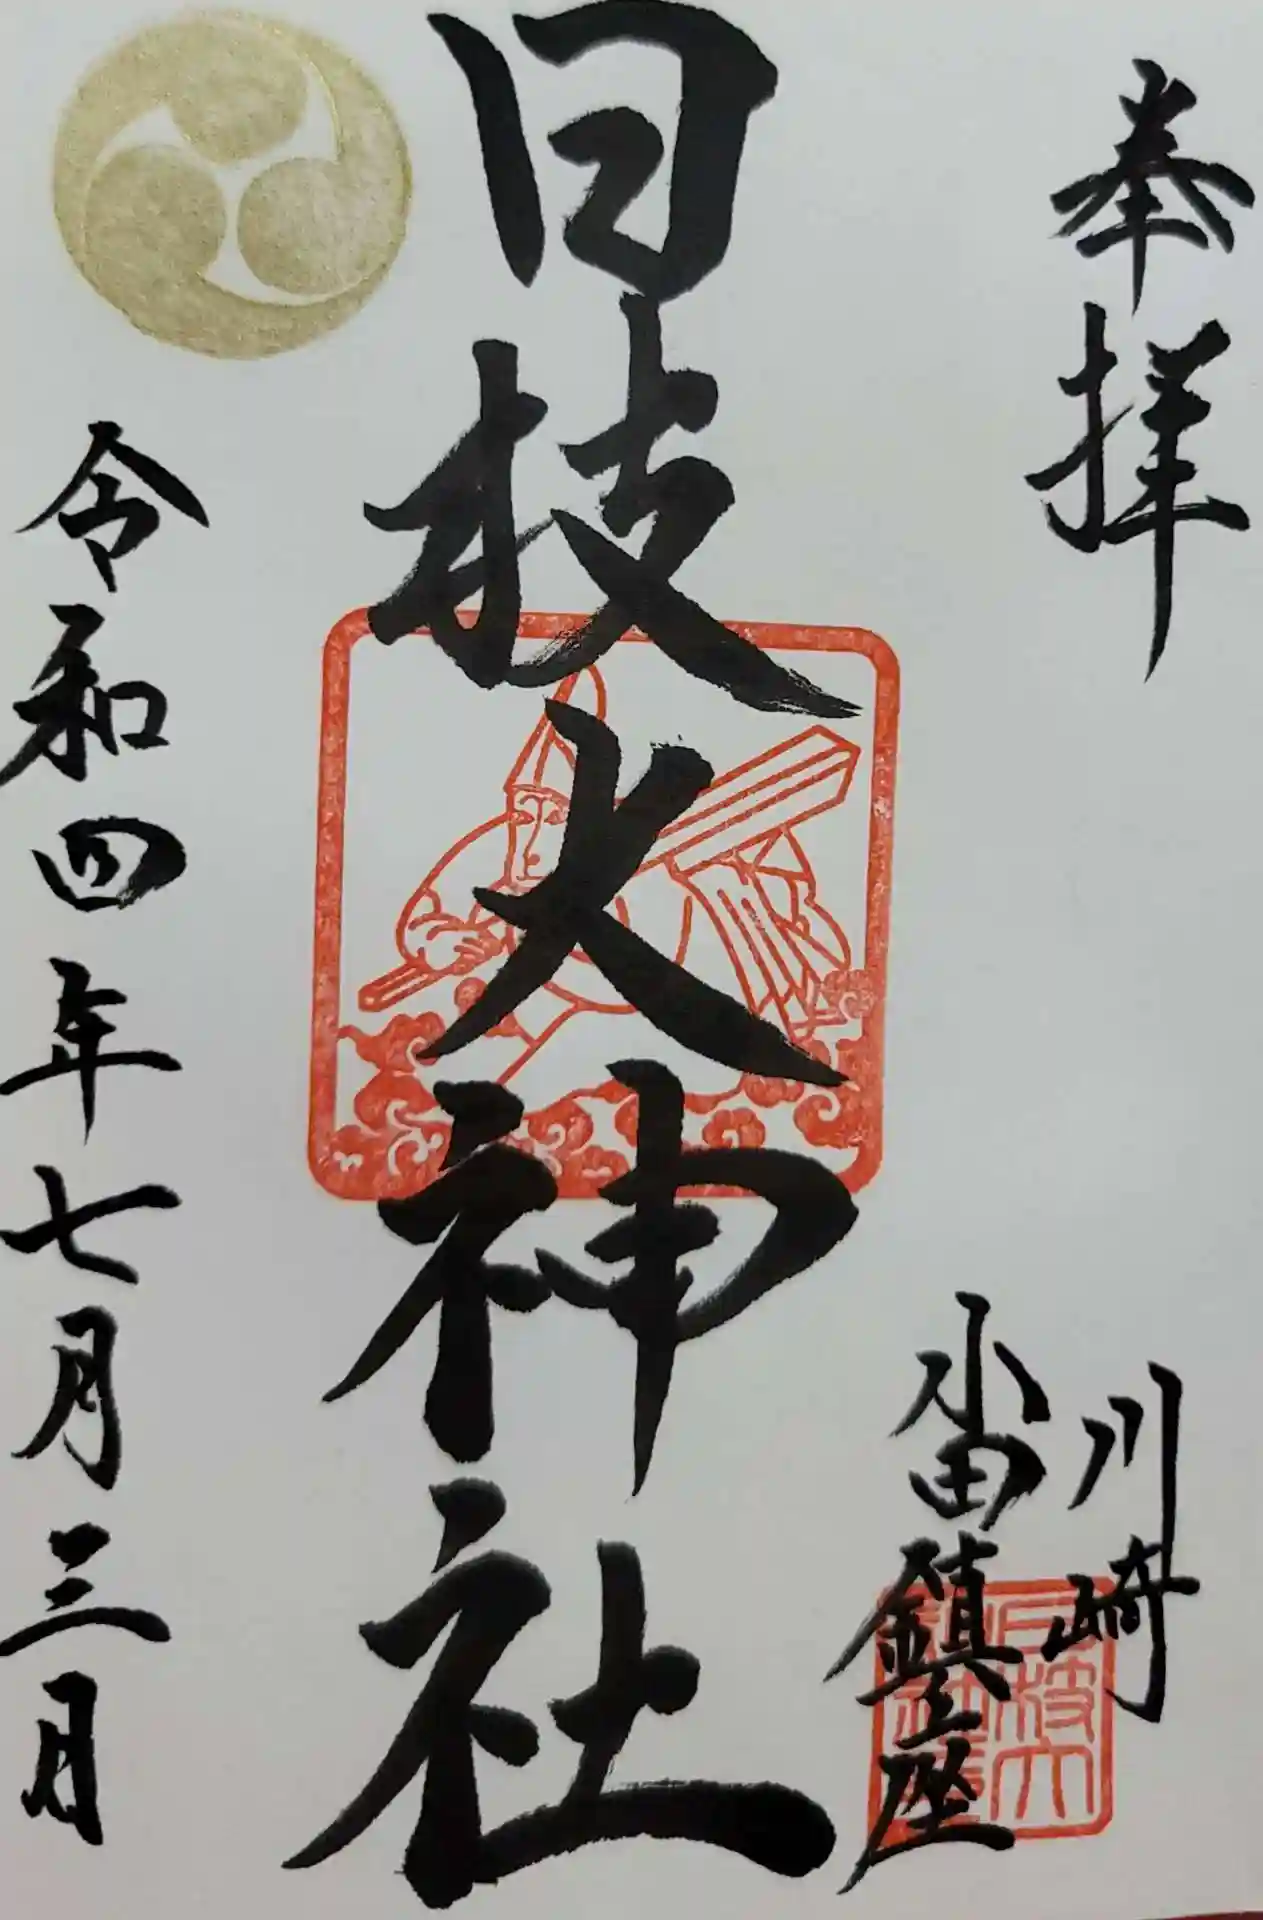 奉拝
川崎
小田鎮座
日枝大神社
令和四年七月三日